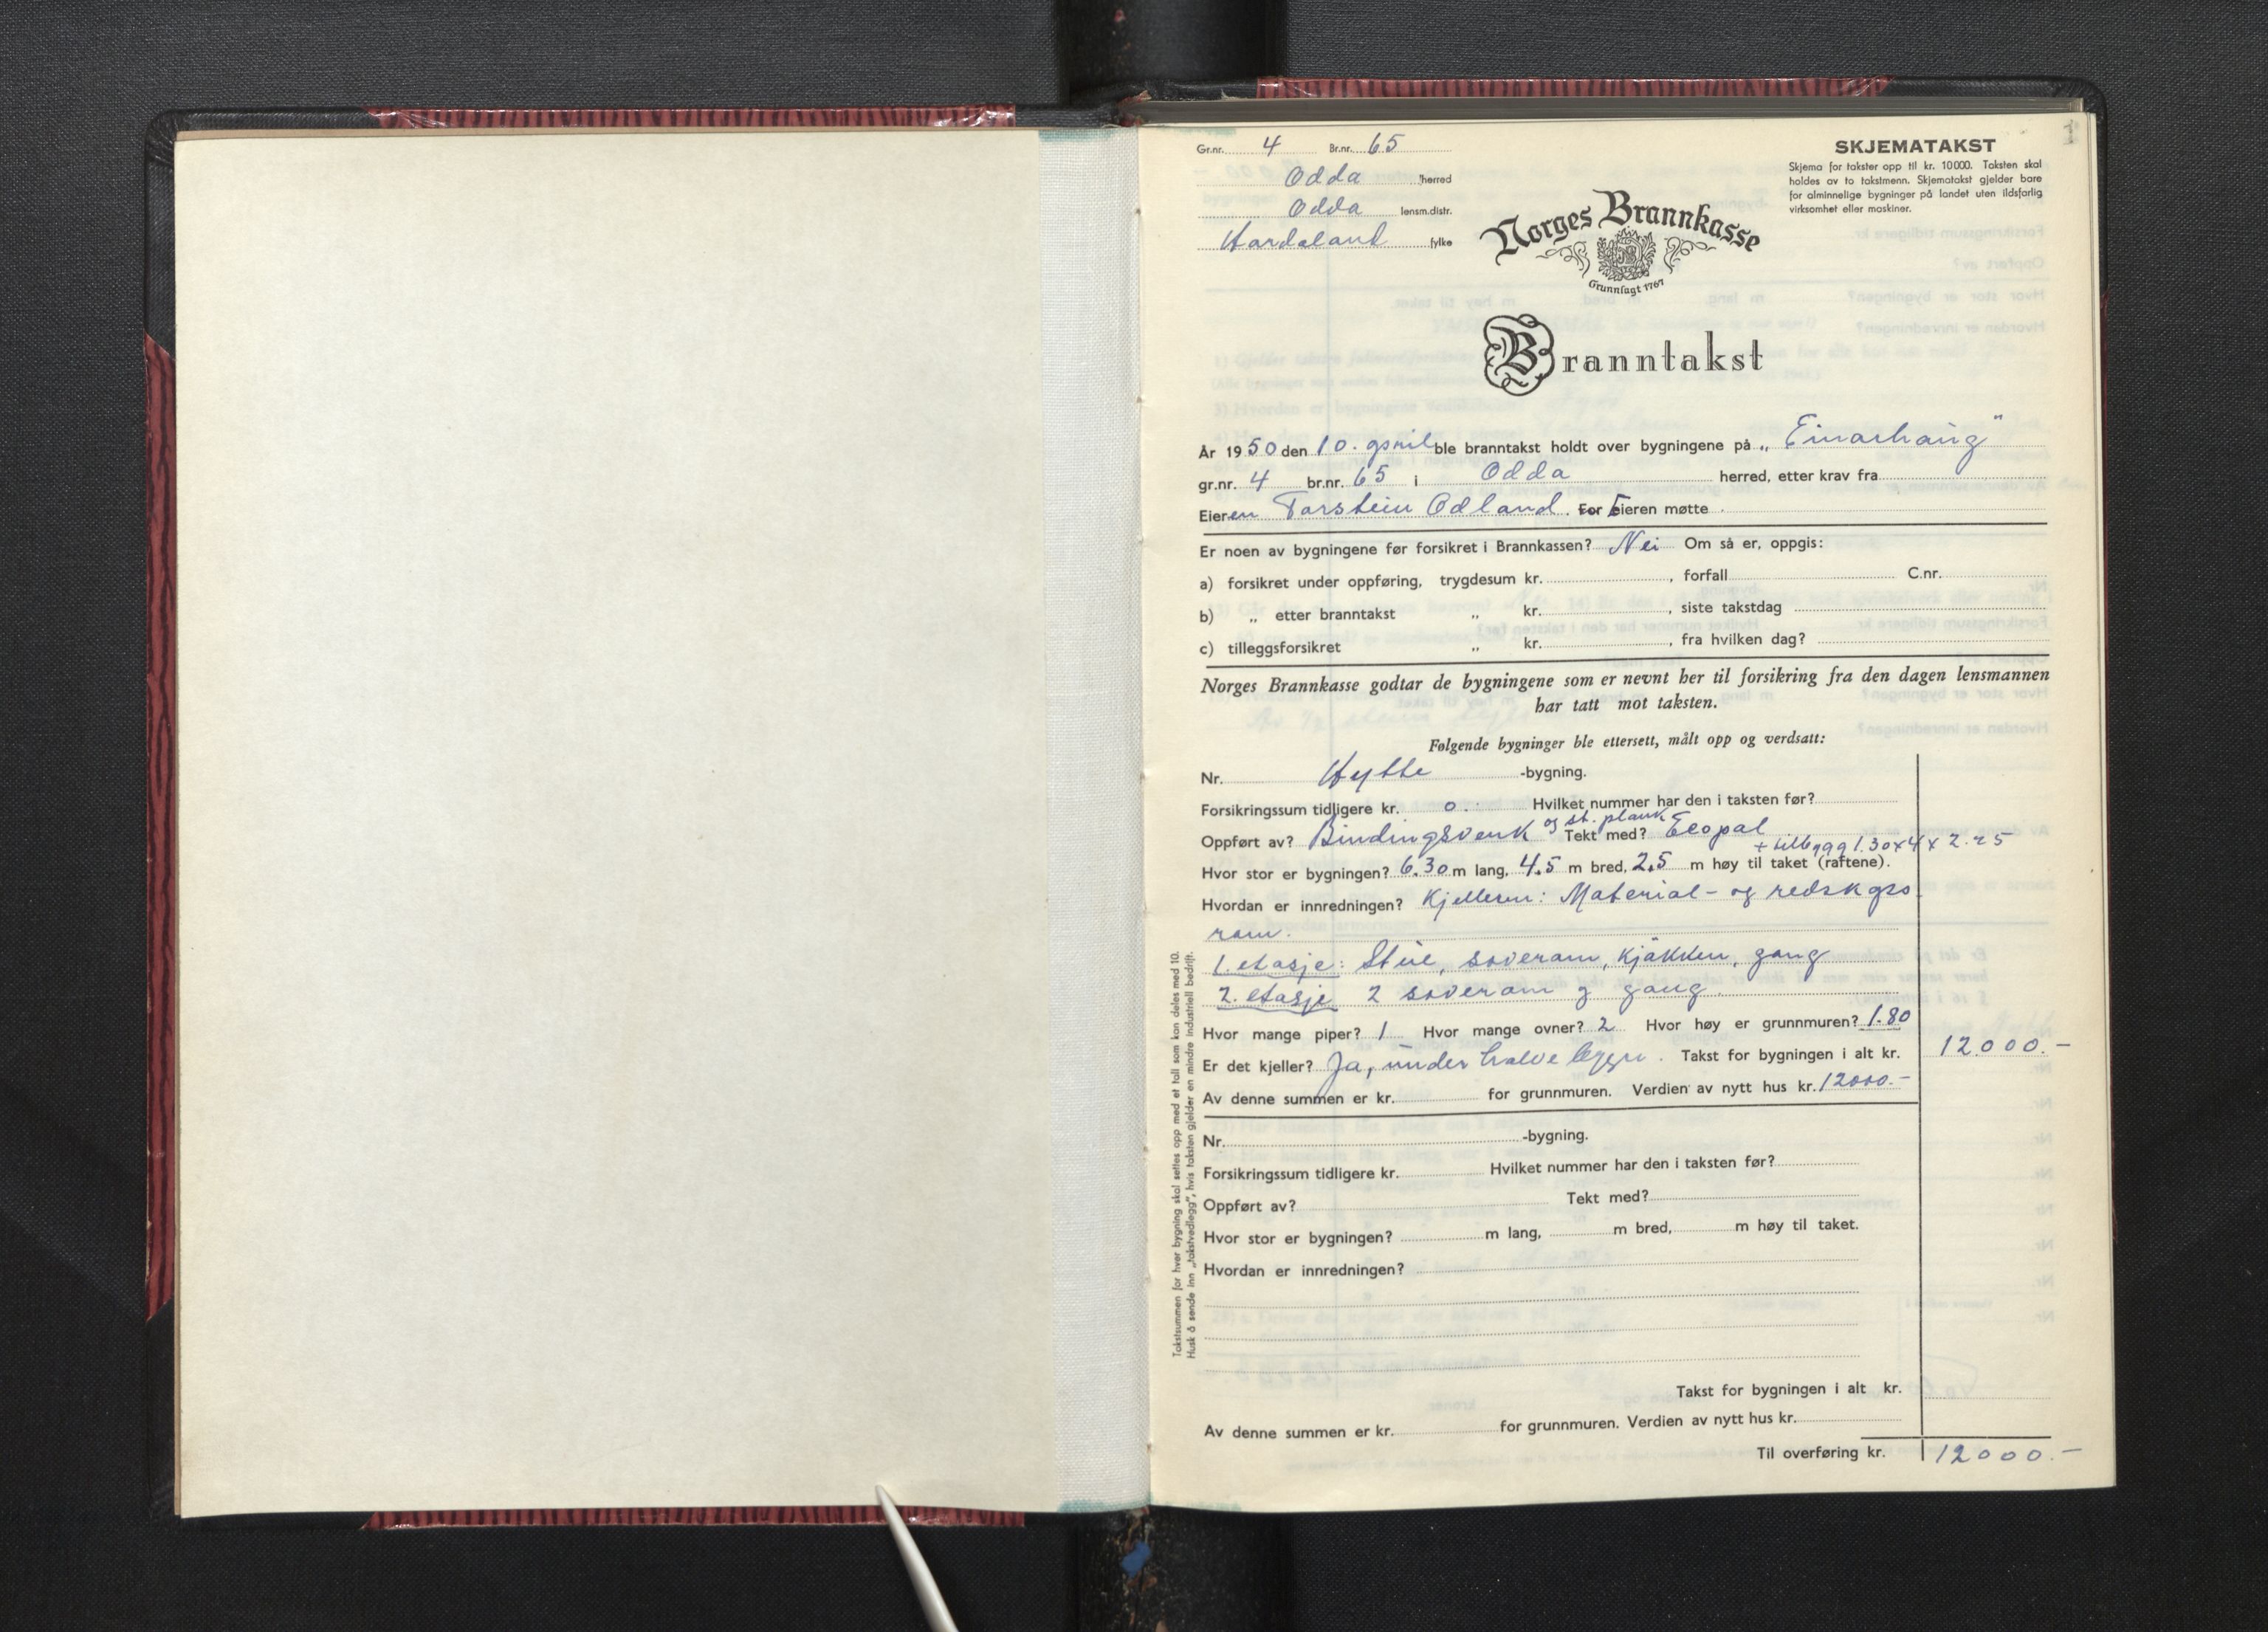 1
Gr.nr. 4 Br.nr. 65
Odda herred
Odda lensm.distr.
Hordaland fylke
SKJEMATAKST
Skjema for takster opp til kr. 10000. Taksten skal
holdes av to takstmenn. Skjematakst gjelder bare
for alminnelige bygninger på landet uten ildsfarlig
virksomhet eller maskiner.
Norges Brannkasse
Grunnlagt 1767
Branntakst
År 1950 den 10. april ble branntakst holdt over bygningene på „ Einarhaug"
gr.nr. 4 br.nr. 65 i Odda herred, etter krav fra
Eieren Torstein Odland. For Eieren møtte
Er noen av bygningene før forsikret i Brannkassen? Nei Om så er, oppgis:
a) forsikret under oppføring, trygdesum kr. , forfall C.nr.
b) „ etter branntakst „ kr. , siste takstdag
c) tilleggsforsikret „ kr. , fra hvilken dag?
Norges Brannkasse godtar de bygningene som er nevnt her til forsikring fra den dagen lensmannen
har tatt mot taksten.
Følgende bygninger ble ettersett, målt opp og verdsatt:
Nr. Hytte -bygning.
Forsikringssum tidligere kr. 0. Hvilket nummer har den i taksten før?
Oppført av? Bindingsverk og st. plank Tekt med? Ecopal
+ tilbygg 1.30x4 x 2.25
Hvor stor er bygningen? 6.30 m lang, 4.5 m bred, 2.5 m høy til taket (raftene).
Hvordan er innredningen? Kjelleren: Material- og redskaps
rom.
1. etasje: Stue, soverom, kjøkken, gang
2. etasje 2 soverom og gang.
Hvor mange piper? 1 Hvor mange ovner? 2 Hvor høy er grunnmuren? 1.80
Er det kjeller? Ja, under halve bygn. Takst for bygningen i alt kr. 12000.-
Av denne summen er kr. for grunnmuren. Verdien av nytt hus kr. 12000.-
Nr. -bygning.
Forsikringssum tidligere kr. Hvilket nummer har den i taksten før?
Oppført av? Tekt med?
Hvor stor er bygningen? m lang, m bred, m høy til taket.
Hvordan er innredningen?
Takst for bygningen i alt kr.
Av denne summen er kr. for grunnmuren. Verdien av nytt hus kr.
Til overføring kr. 12000.-
Takstsummen for hver bygning skal settes opp med et tall som kan deles med 10.
Husk å sende inn „takstvedlegg", hvis taksten gjelder en mindre industriell bedrift.